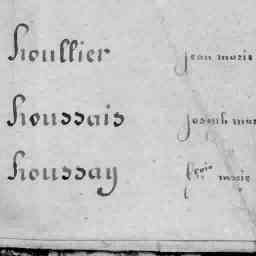 houllier jean marie
houssais joseph mar
houssay frois marie